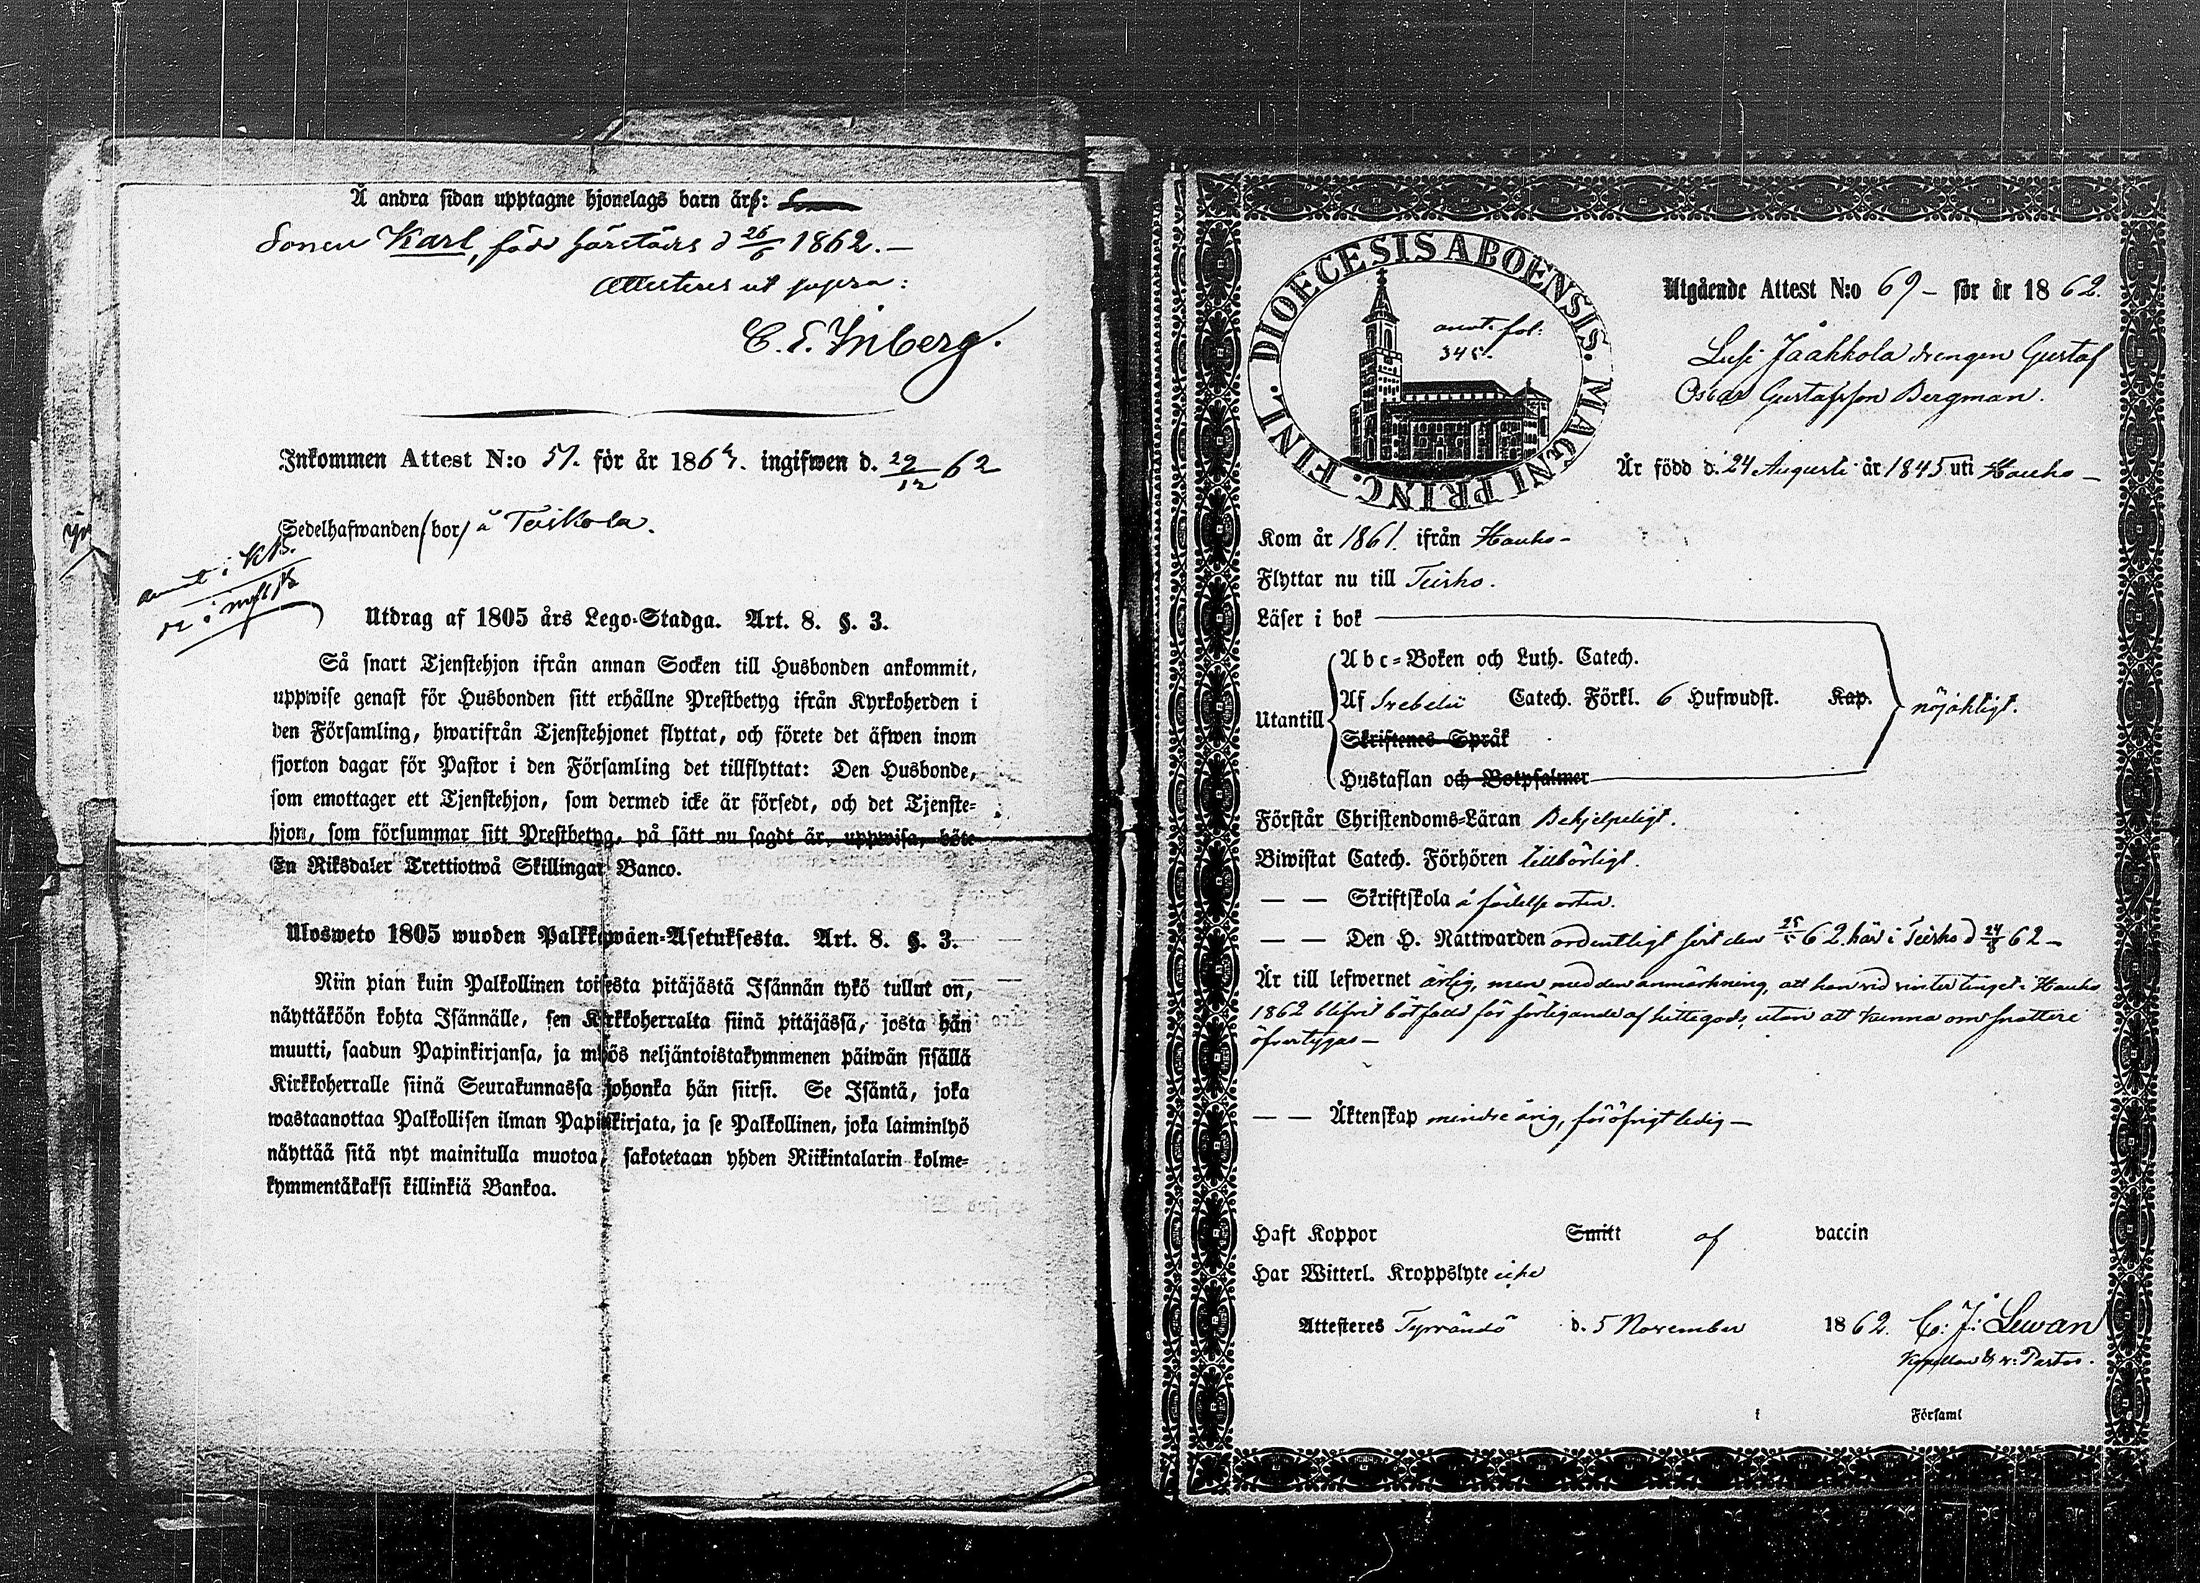 Å andra sidan upptagne hjonelags barn är:
Sonen Karl, född härstädes d 26/6 1862.–
Attesteres ut supra:
C. E. Inberg.
Inkommen Attest N:o 57. för år 1862. ingifwen d. 29/12 62
Sedelhafwanden (bor) å Teiskola.
annot i KB.
Utdrag af 1805 års Lego-Stadga. Art. 8. §. 3.
Så snart Tjenstehjon ifrån annan Socken till Husbonden ankommit,
uppwise genast för Husbonden sitt erhållne Prestbetyg ifrån Kyrkoherden i
den Församling, hwarifrån Tjenstehjonet flyttat, och förete det äfwen inom
fjorton dagar för Pastor i den Församling det tillflyttat: Den Husbonde,
som emottager ett Tjenstehjon, som dermed icke är försedt, och det Tjenste=
hjon, som försummar sitt Prestbetyg, på sätt nu sagdt är, uppwisa, böte
En Riksdaler Trettiotwå Skillingar Banco.
Ulosweto 1805 wuoden Palkkawäen-Asetuksesta. Art. 8. §. 3.
Niin pian kuin Palkollinen toisesta pitäjästä Isännän tykö tullut on,
näyttäköön kohta Isännälle, sen Kirkkoherralta siinä pitäjässä, josta hän
muutti, saadun Papinkirjansa, ja myös neljäntoistakymmenen päiwän sisällä
Kirkkoherralle siinä Seurakunnassa johonka hän siirsi. Se Isäntä, joka
wastaanottaa Palkollisen ilman Papinkirjata, ja se Palkollinen, joka laiminlyö
näyttää sitä nyt mainitulla muotoa, sakotetaan yhden Riikintalarin kolme=
kymmentäkaksi killinkiä Bankoa.
DIOECESIS ABOENSIS. MAGNI PRINC. FINL.
annot. fol:
345.
Utgående Attest N:o 69 – för år 1862.
Lusi Jaakkola drengen Gustaf
Oscar Gustafsson Bergman.
Är född d. 24 Augusti år 1845 uti Hauho –
Kom år 1861. ifrån Hauho –
Flyttar nu till Teisko.
Läser i bok
Abc=Boken och Luth. Catech.
Utantill Af Svebelii Catech. Förkl. 6 Hufwudst. Kap. nöjaktigt.
Skriftenes Språk
Hustaflan och Botpsalmer
Förstår Christendoms=Läran Behjelpeligt.
Biwistat Catech. Förhören tillbörligt.
— — Skriftskola å födelseorten.
— — Den H. Nattwarden ordentligt sist den 25/5 62. här i Teisko d 24/8 62 –
Är till lefwernet ärlig, men med den anmärkning, att han vid vintertinget i Hauho
1862 blifvit bötfälld för förtigande af hittegods, utan att kunna om snatteri
öfvertygas –
— — Äktenskap minderårig, för öfrigt ledig –
Haft Koppor Smitt af vaccin
Har Witterl. Kroppslyte icke
Attesteres Tyrväntö d. 5 November 1862. C: J: Lewan
Kapellan & v: Pastor.
i Församl